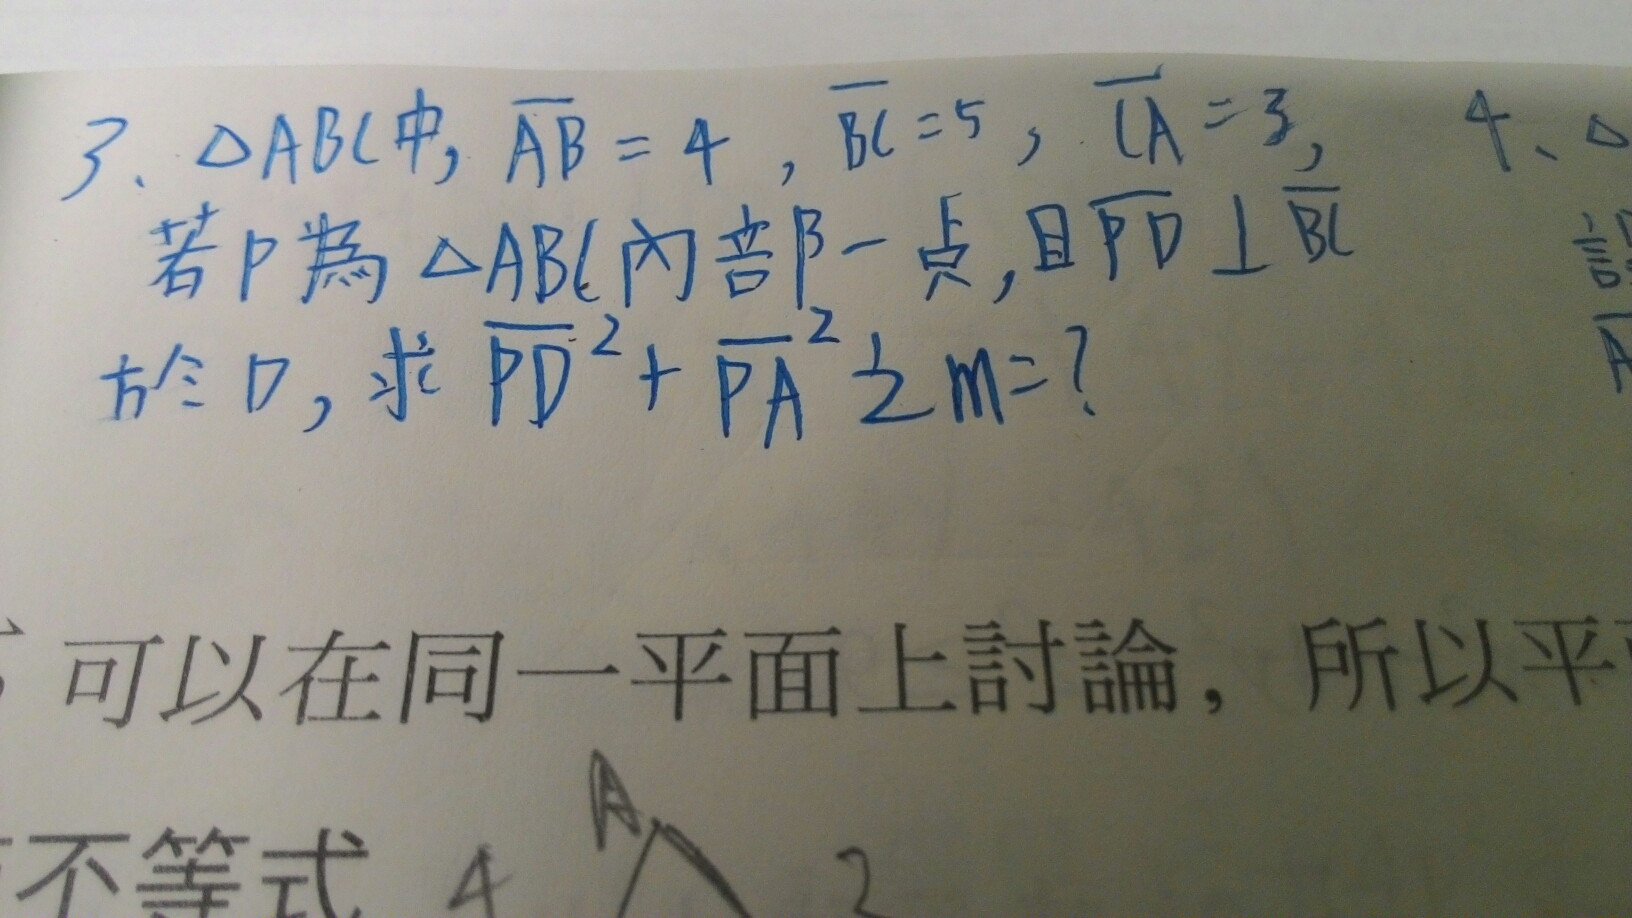 3、△ABC中, AB = 4 , BC = 5 , CA = 3,
若P為△ABC內部一点,且PD⊥BC
於D, 求 PD² + PA² 之 m=?
4、△
A
可以在同一平面上討論，所以平
不等式
A
4